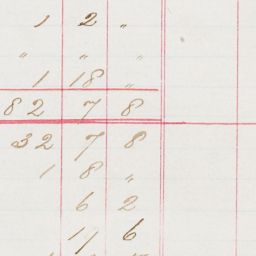 1 2 "
" " "
1 18 "
82 7 8
32 7 8
1 8 "
6 2
11 6